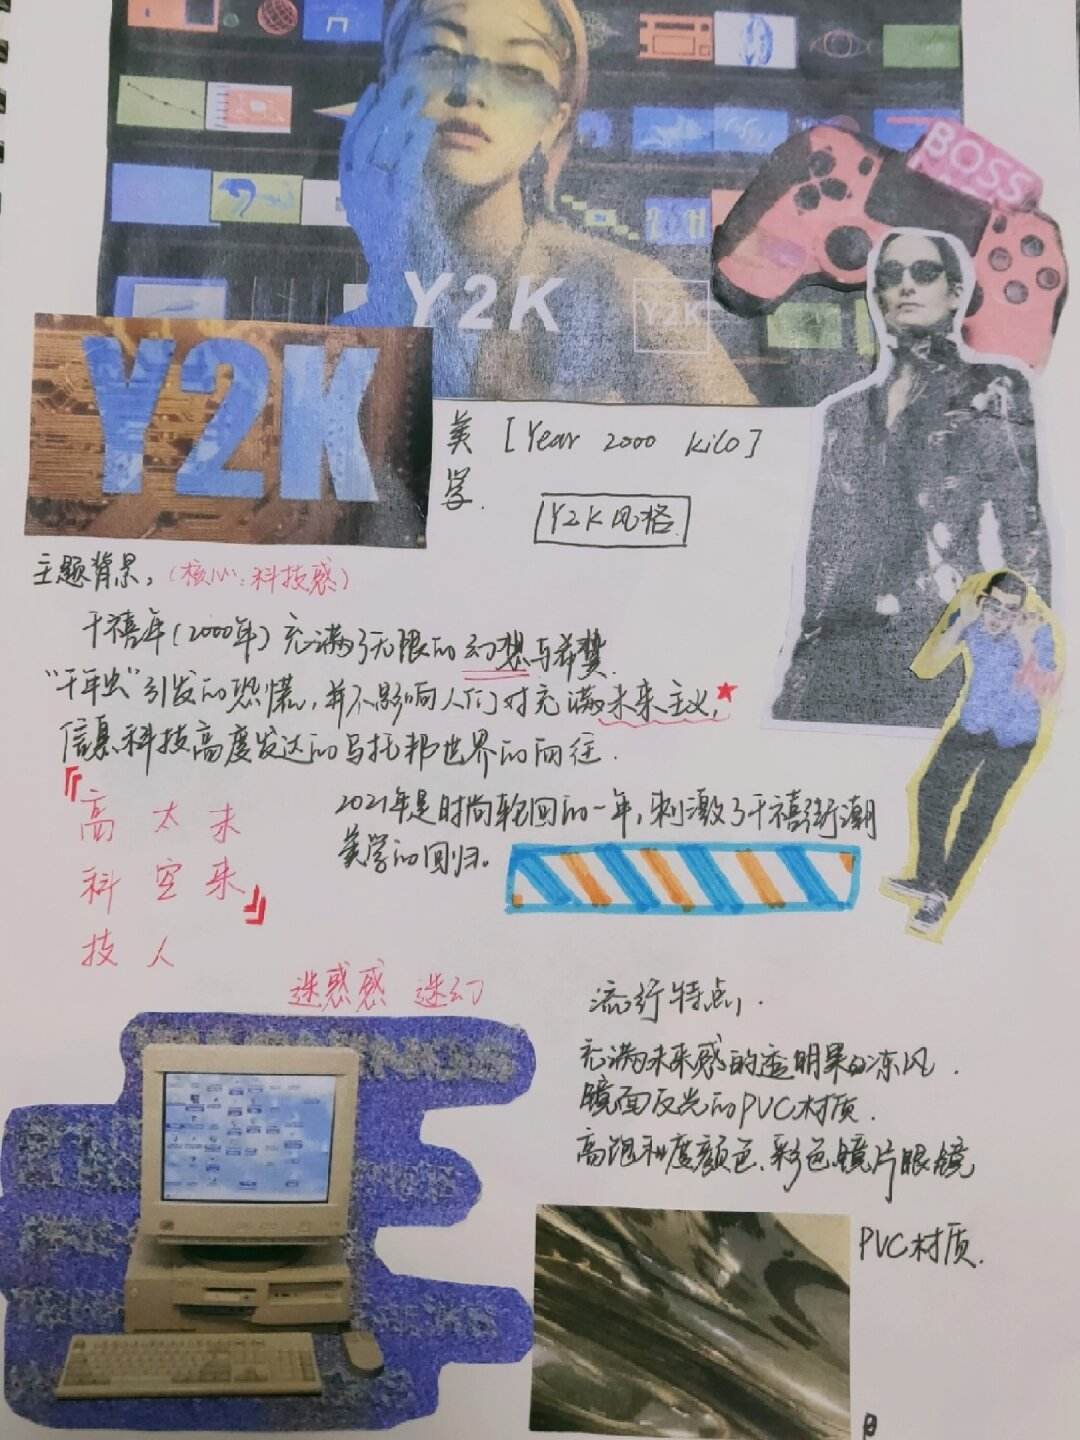 BOSS
Y2K
Y2K
Y2K
美学.
[Year 2000 kilo]
Y2K风格.
主题背景，(核心：科技感)
千禧年(2000年)充满了无限的幻想与希冀.
“千年虫”引发的恐慌，并不影响人们对充满未来主义，
信息科技高度发达的乌托邦世界的向往.
『高科技
太空人
未来』
2021年是时尚轮回的一年，刺激了千禧街潮
美学的回归。
迷惑感 迷幻
流行特点，.
充满未来感的透明果冻风.
镜面反光的PVC材质.
高饱和度颜色、彩色镜片眼镜
PVC材质.